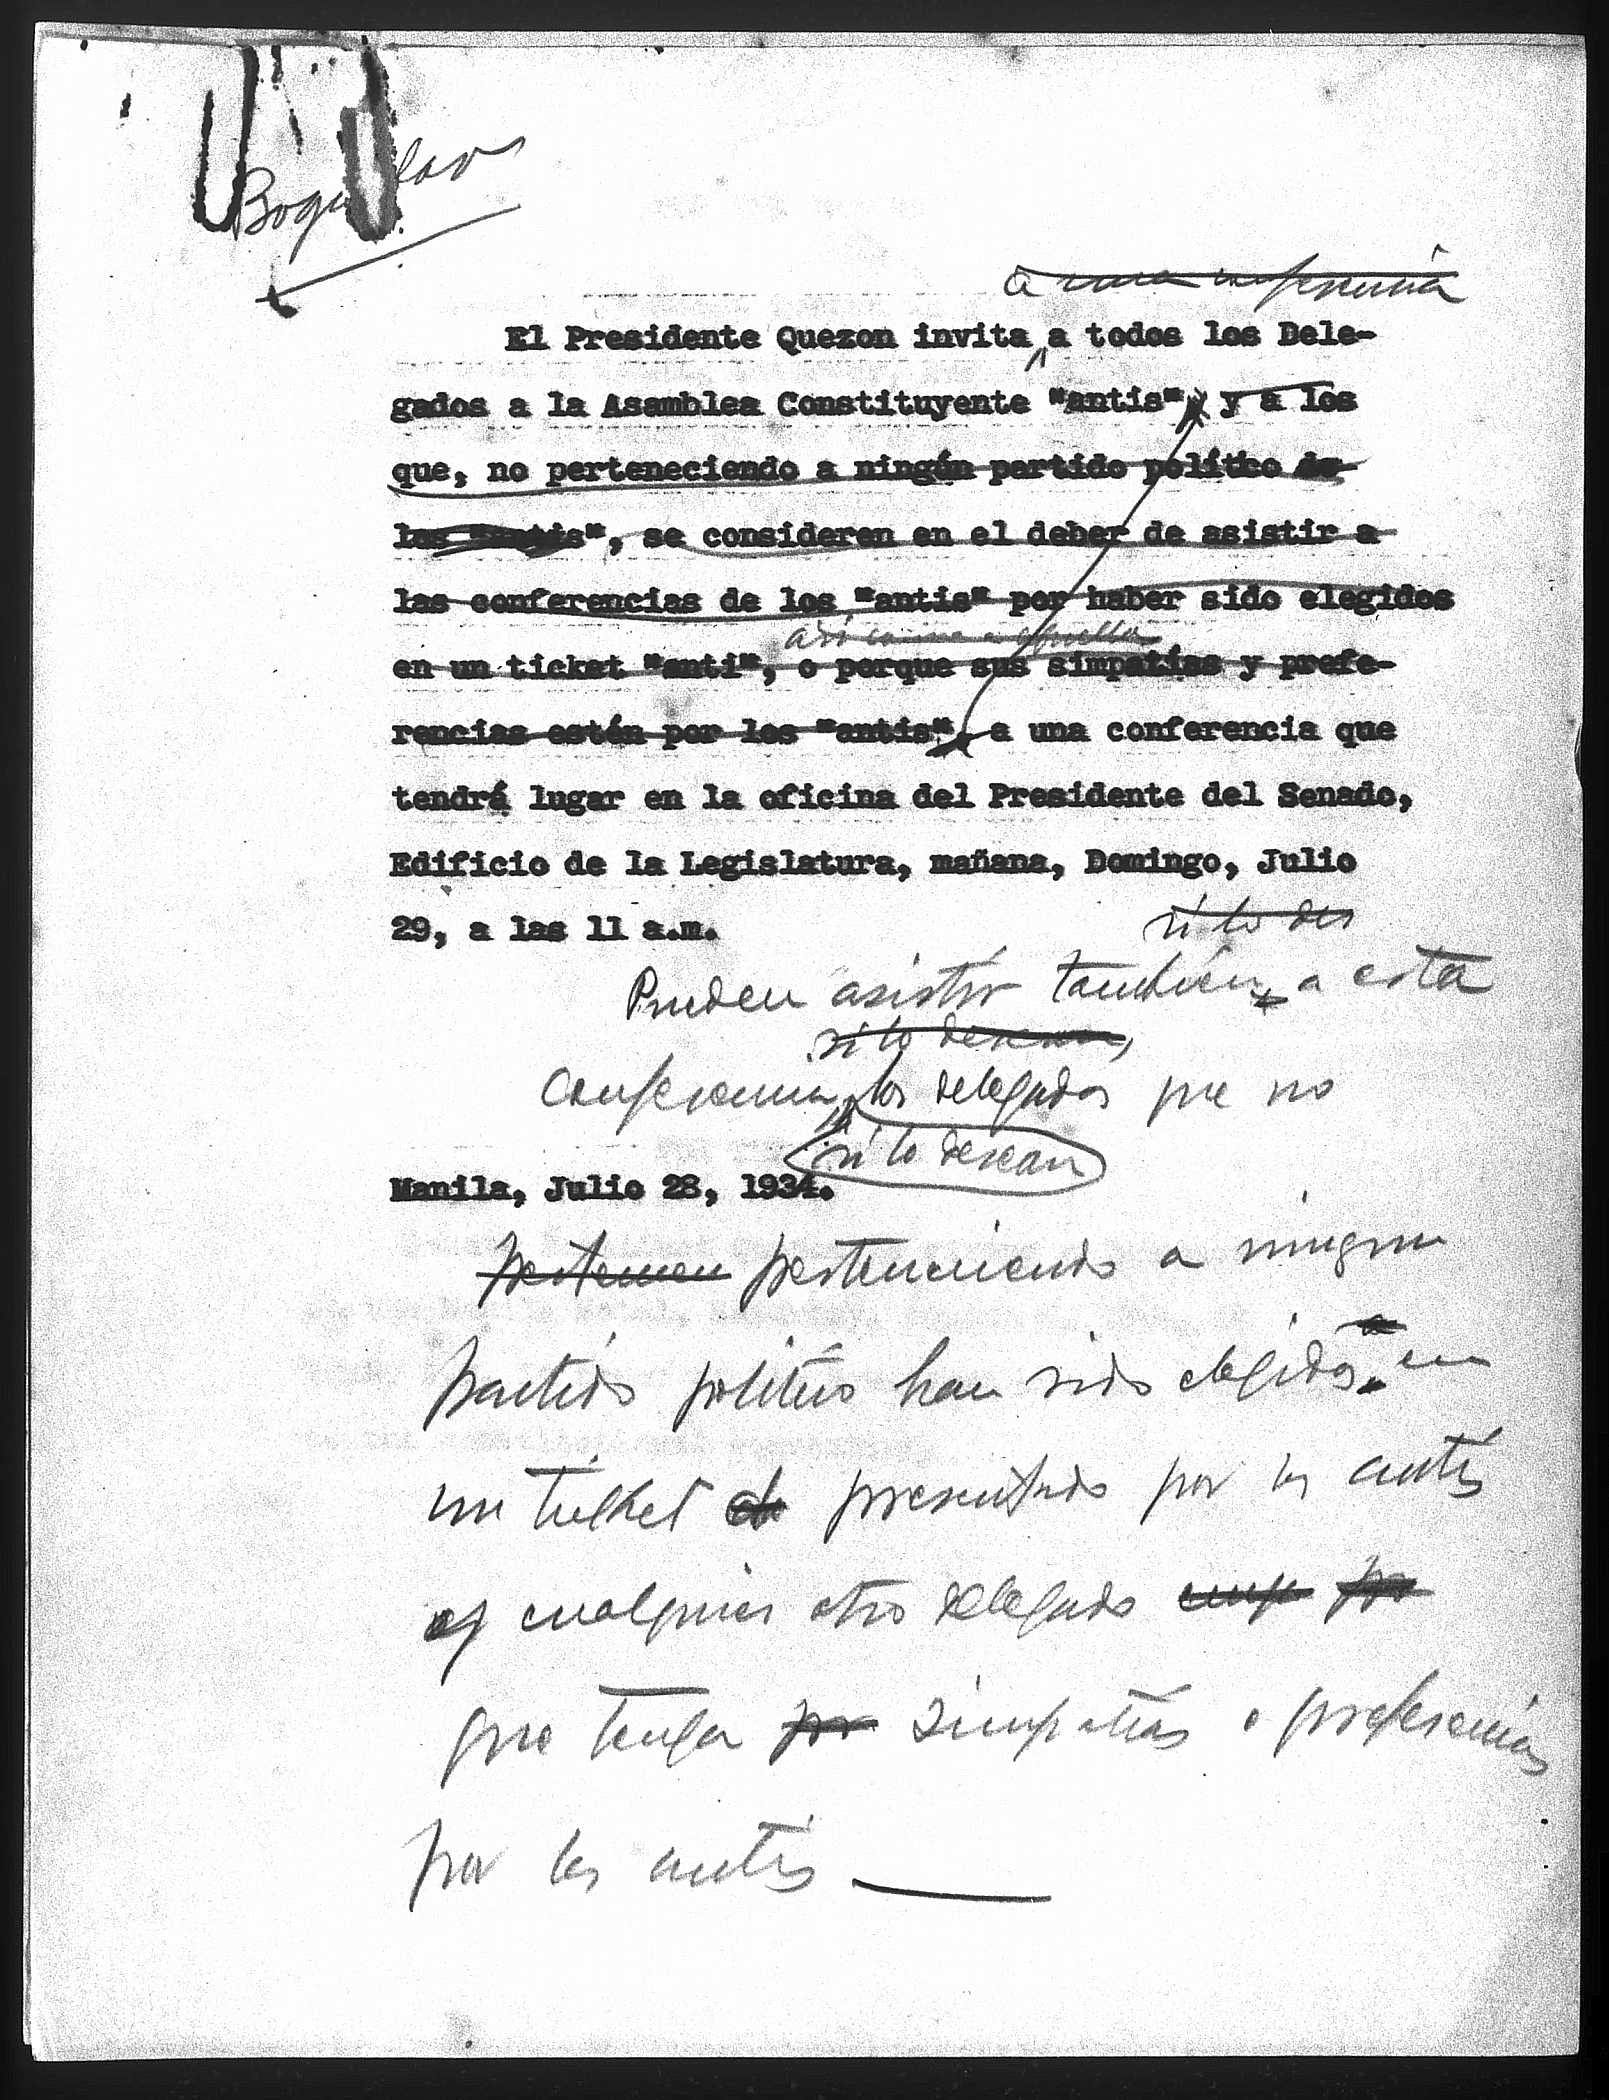 a una conferencia
El Presidente Quezon invita a todos los Dele-
gados a la Asamblea Constituyente "antis", y a los
que, no perteneciendo a ningún partido político de
los "antis", se consideren en el deber de asistir a
las conferencias de los "antis" por haber sido elegidos
así como a aquellos
en un ticket "anti", o porque sus simpatías y prefe-
rencias estén por los "antis", a una conferencia que
tendrá lugar en la oficina del Presidente del Senado,
Edificio de la Legislatura, mañana, Domingo, Julio
29, a las 11 a.m.
si lo des
Pueden asistir también, a esta
si lo desean,
conferencia los delegados que no
si lo desean
Manila, Julio 28, 1934.
pertenecen perteneciendo a ningun
partido político han sido elegidos en
un ticket de presentado por los antis
y cualquier otro delegado
que tenga por simpatías o preferencias
por los antis